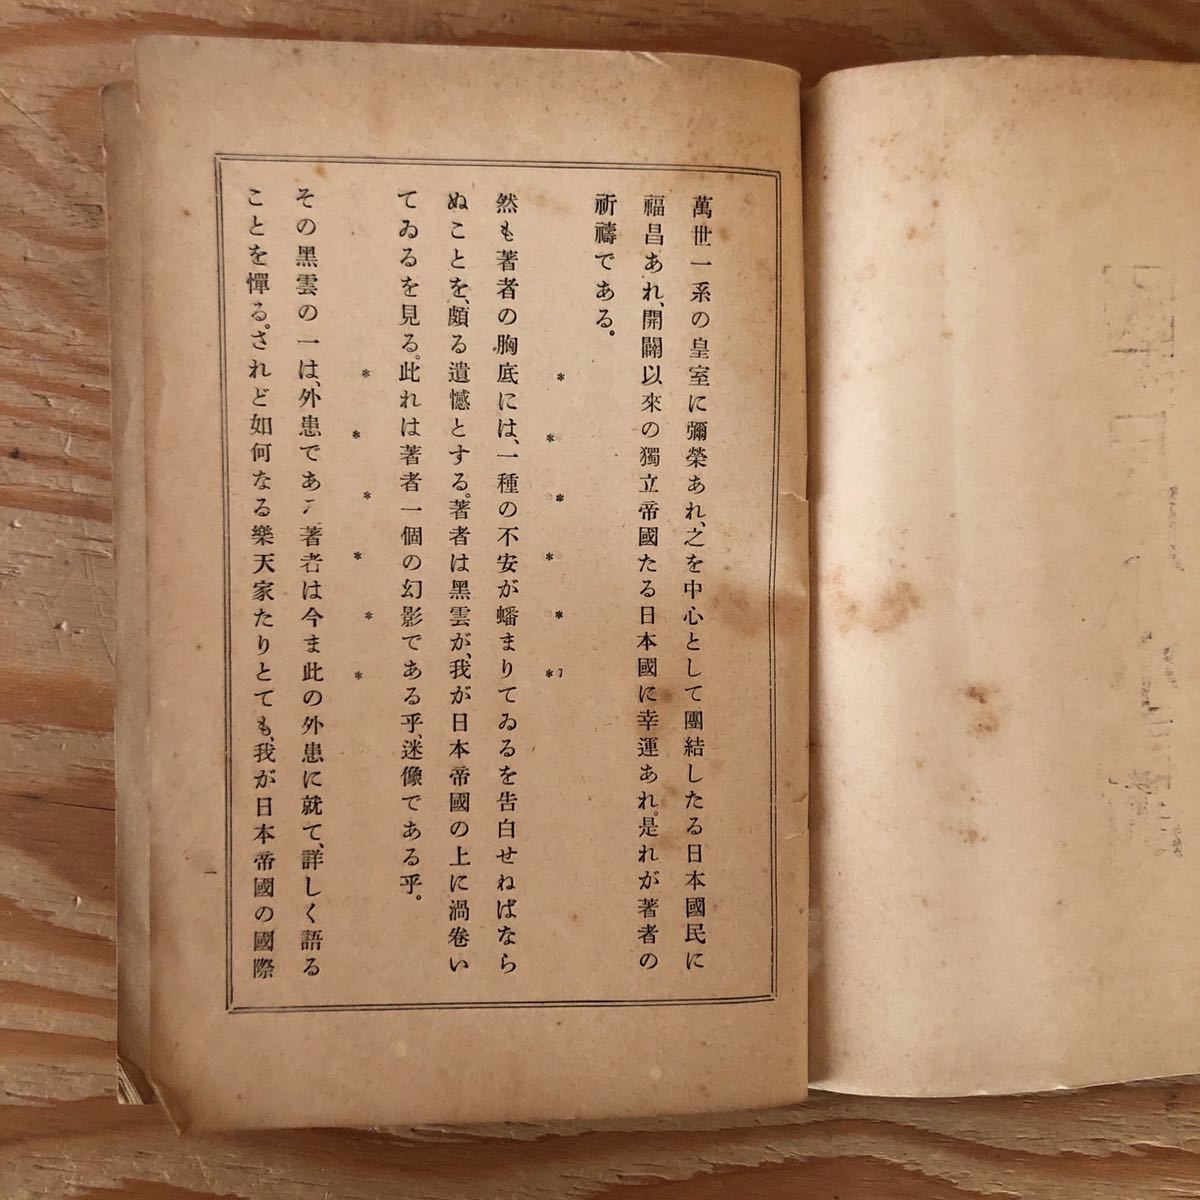 萬世一系の皇室に彌榮あれ、之を中心として團結したる日本國民に
福昌あれ、開闢以來の獨立帝國たる日本國に幸運あれ。是れが著者の
祈禱である。
* * * * * *
然も著者の胸底には、一種の不安が蟠まりてゐるを告白せねばなら
ぬことを、頗る遺憾とする。著者は黑雲が、我が日本帝國の上に渦卷い
てゐるを見る。此れは著者一個の幻影である乎、迷像である乎。
* * * * * *
その黑雲の一は、外患である。著者は今ま此の外患に就て、詳しく語る
ことを憚る。されど如何なる樂天家たりとても、我が日本帝國の國際